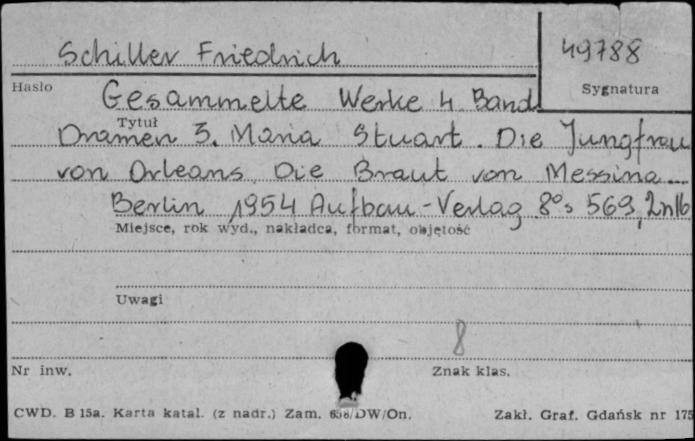 Schiller Friedrich
49788
Hasło
Sygnatura
Gesammelte Werke 4 Band
Tytuł
Dramen 3. Maria Stuart. Die Jungfrau
von Orleans Die Braut von Messina...
Berlin 1954 Aufbau-Verlag 8° s 569, 2nlb
Miejsce, rok wyd., nakładca, format, objętość
Uwagi
8
Nr inw.
Znak klas.
CWD. B 15a. Karta katal. (z nadr.) Zam. 656/DW/On.
Zakł. Graf. Gdańsk nr 175